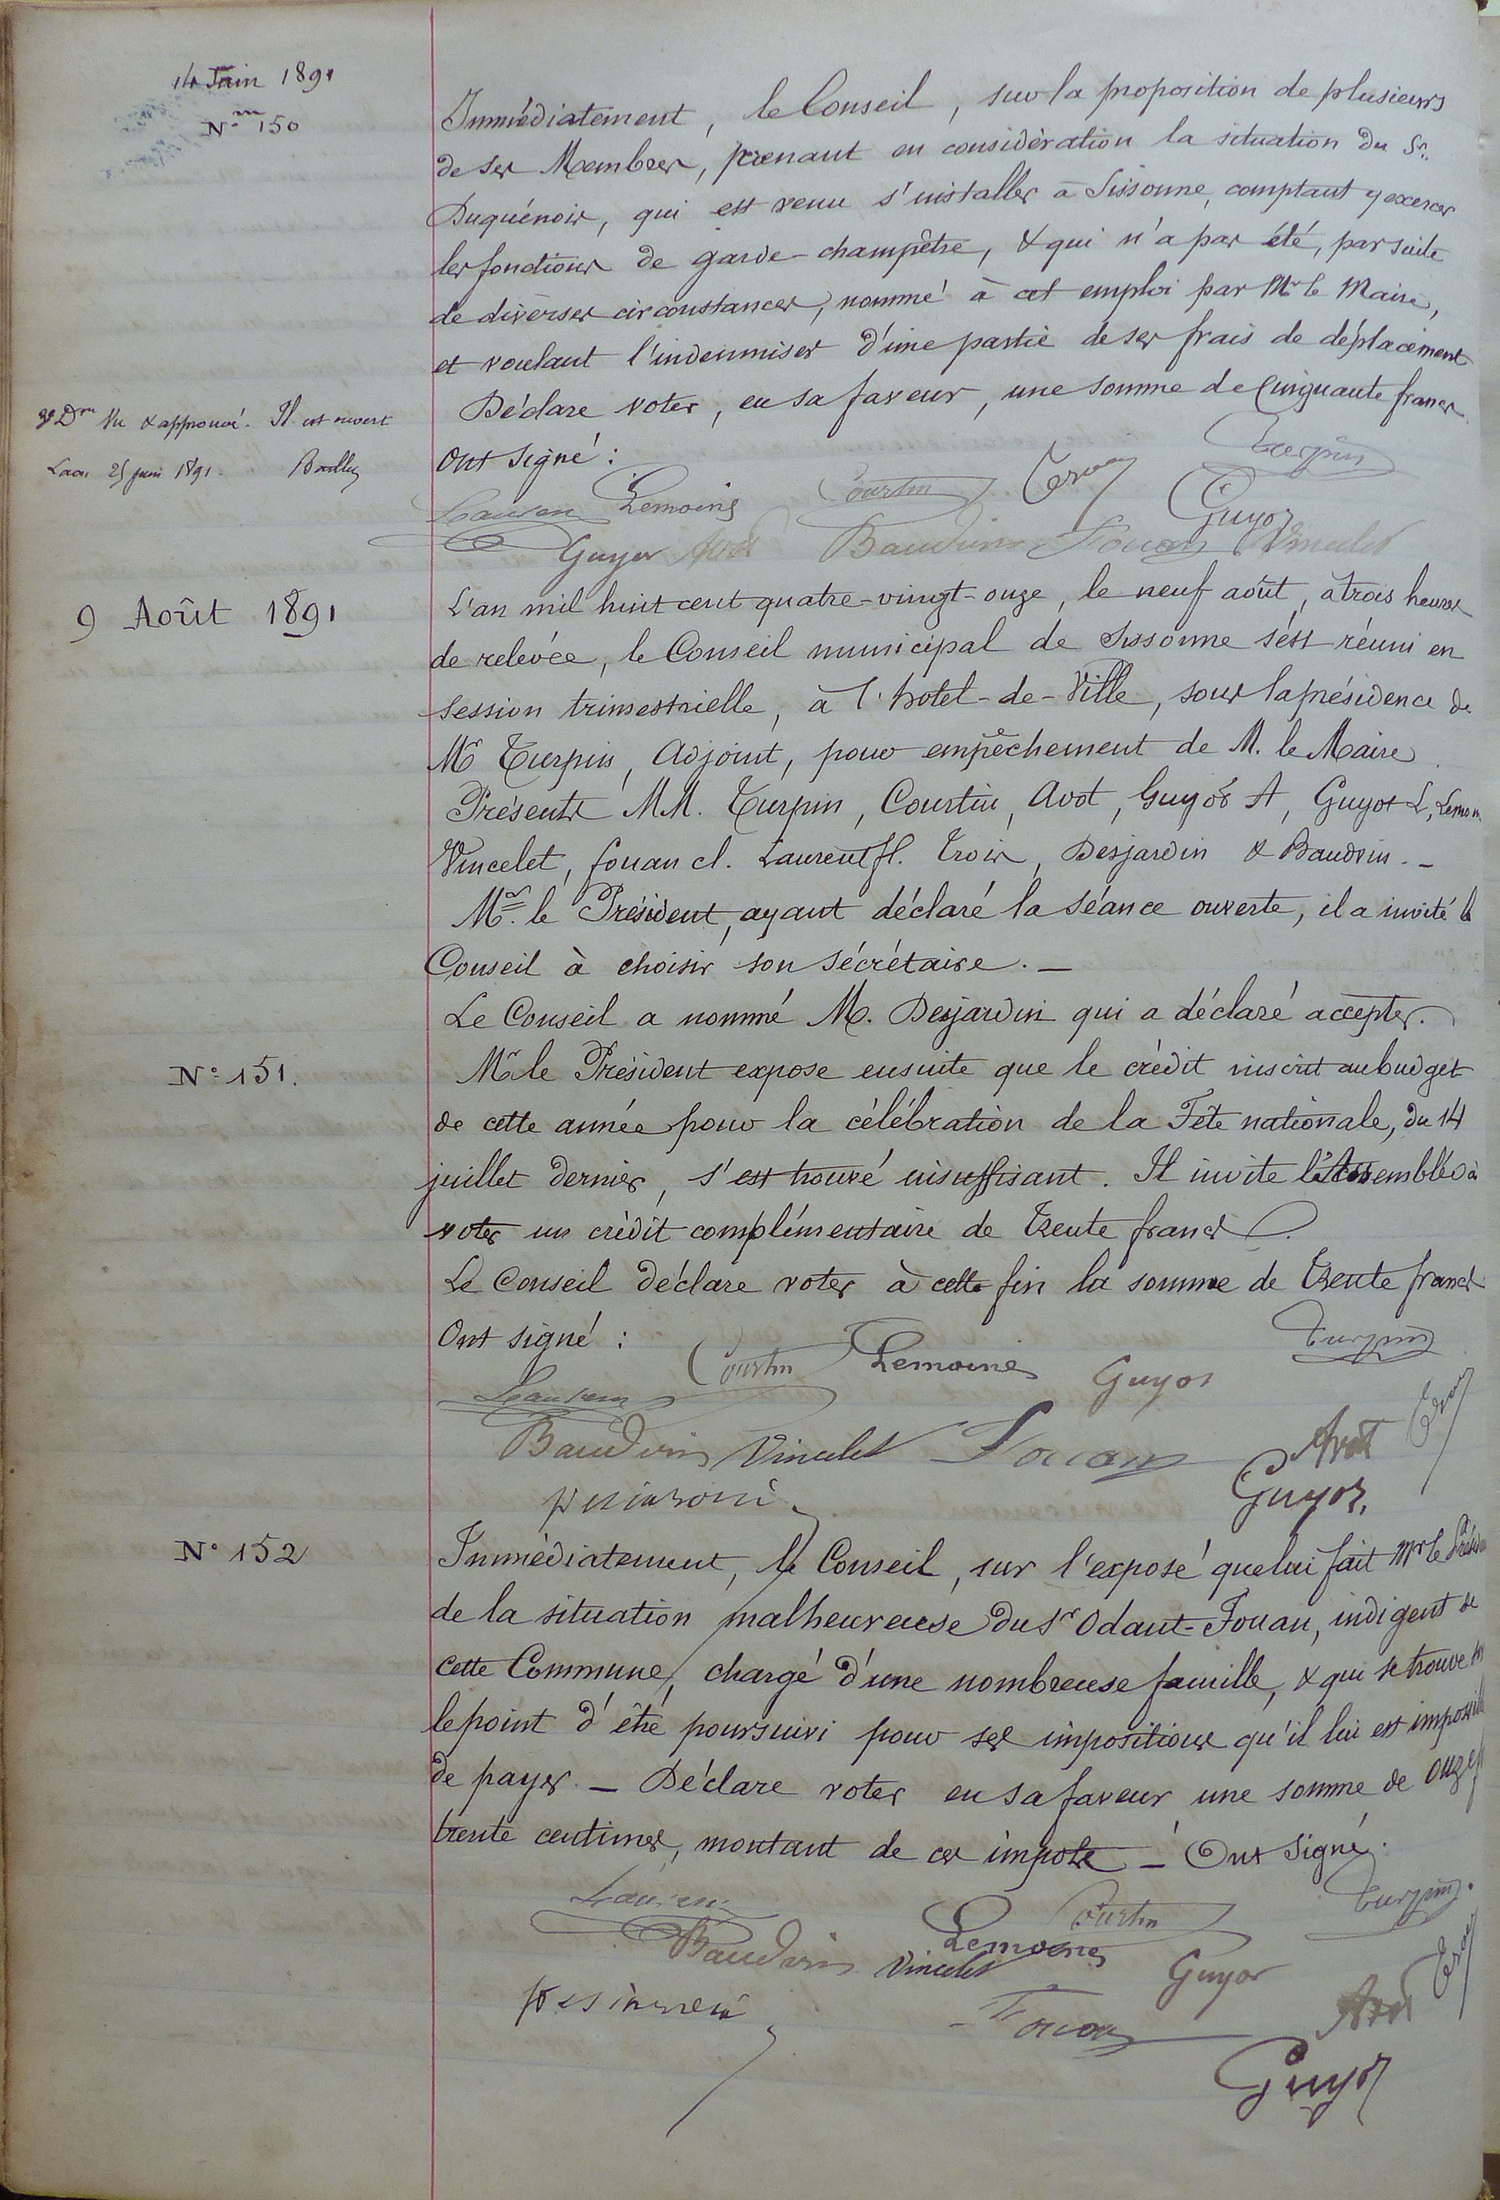 14 Juin 1891
N° 150
Immédiatement, le Conseil, sur la proposition de plusieurs
de ses Membres, prenant en considération la situation du Sr.
Duquénois, qui est venu s'installer à Sissonne, comptant y exercer
les fonctions de garde-champêtre, & qui n'a pas été, par suite
de diverses circonstances, nommé à cet emploi par Mr le Maire,
et voulant l'indemniser d'une partie de ses frais de déplacement
Déclare voter, en sa faveur, une somme de Cinquante francs.
Vu & approuvé. Il est ouvert
Laon 25 juin 1891.
Ont signé :
Turpin
Laurent Lemoine Courtin Guyot
Guyot Avot Baudoin Fouan Vincelet
9 Août 1891
L'an mil huit cent quatre-vingt-onze, le neuf août, à trois heures
de relevée, le Conseil municipal de Sissonne s'est réuni en
session trimestrielle, à l'hotel-de-Ville, sous la présidence de
Mr Turpin, Adjoint, pour empêchement de M. le Maire.
Présents MM. Turpin, Courtin, Avot, Guyot A, Guyot L, Lemoin
Vincelet, fouan cl. Laurent fl. Trois, Desjardin & Baudoin. -
Mr. le Président, ayant déclaré la séance ouverte, il a invité le
Conseil à choisir son sécrétaire. -
Le Conseil a nommé M. Desjardin qui a déclaré accepter.
N° 151.
Mr le Président expose ensuite que le crédit inscrit au budget
de cette année pour la célébration de la Fête nationale, du 14
juillet dernier, s'est trouvé insuffisant. Il invite l'Assemblée à
voter un crédit complémentaire de Trente francs.
Le Conseil déclare voter à cette fin la somme de Trente francs
Ont signé :
Turpin
Courtin Lemoine Guyot
Laurent
Baudoin Vincelet Fouan Avot
Guyot
N° 152
Immédiatement, le Conseil, sur l'exposé que lui fait Mr le Présiden
de la situation malheureuse du Sr Odant-Fouan, indigent de
cette Commune, chargé d'une nombreuse famille, & qui se trouve sur
le point d'être poursuivi pour ses impositions qu'il lui est impossible
de payer. - Déclare voter en sa faveur une somme de onze f
trente centimes, montant de ces impots - Ont signé :
Laurent Courtin Turpin.
Baudoin Lemoine
Vincelet Guyot
Fouan Avot
Guyot